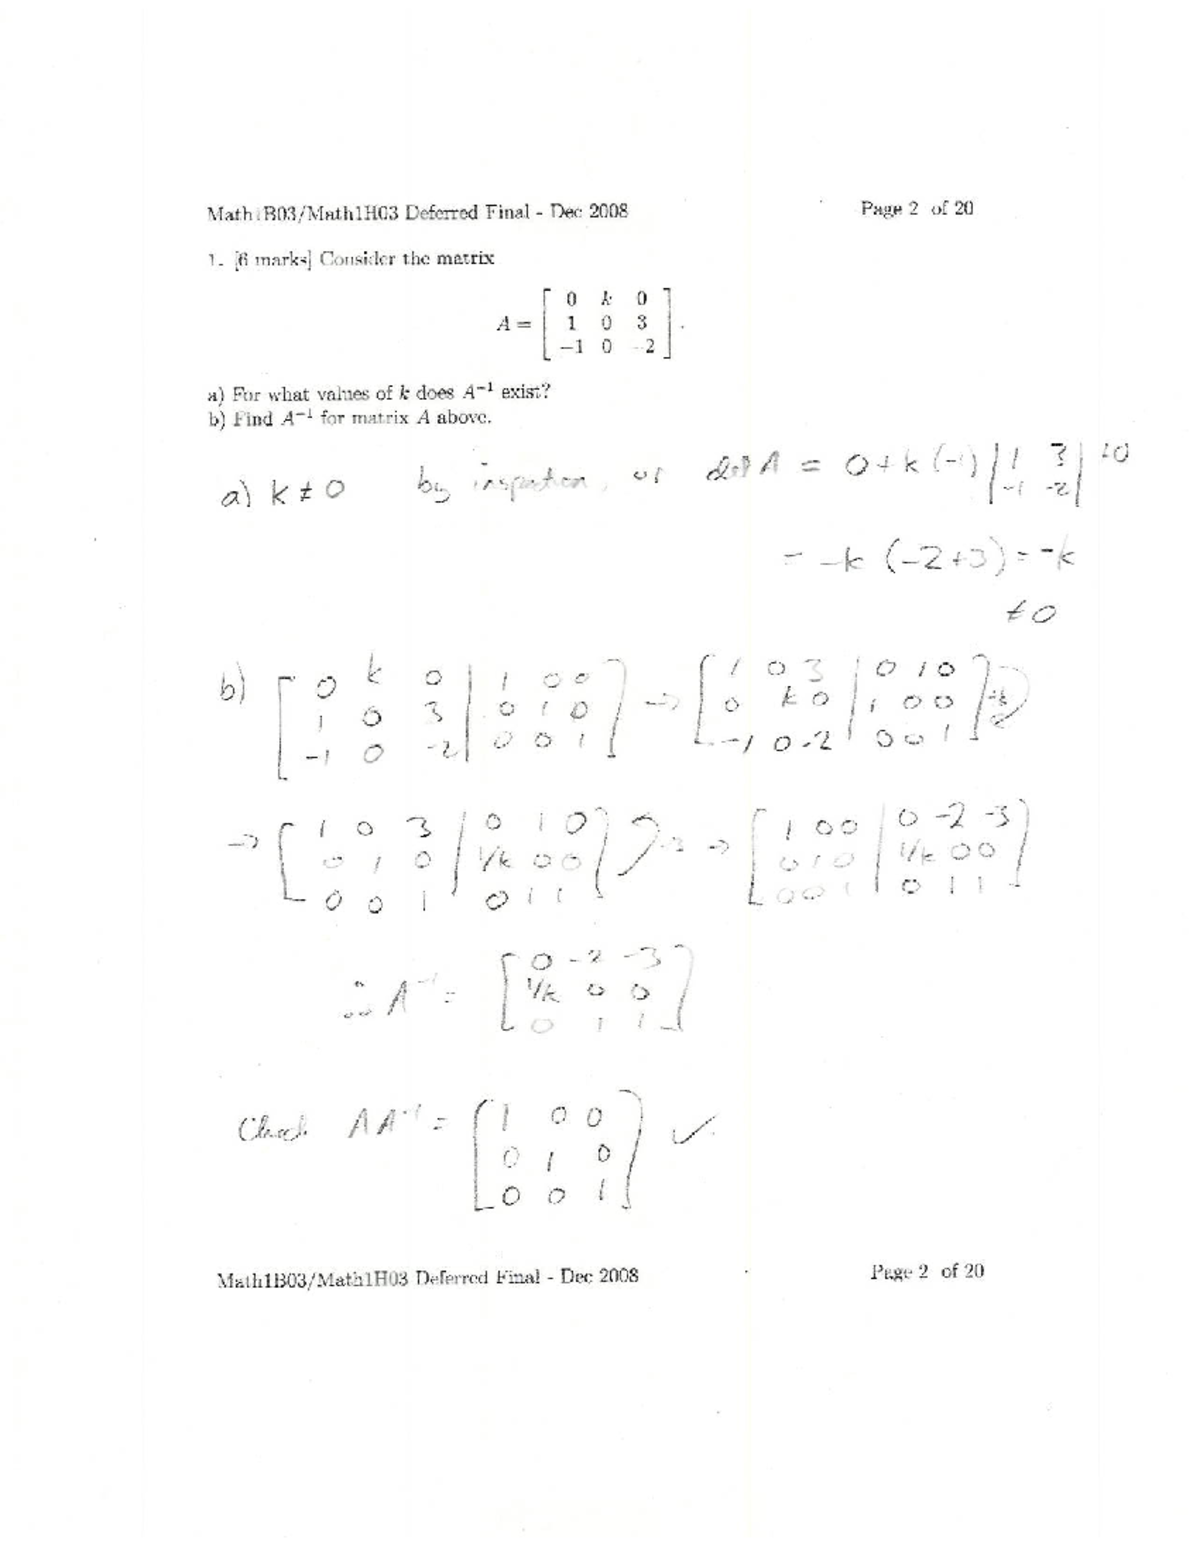 Math1B03/Math1H03 Deferred Final - Dec 2008 Page 2 of 20
1. [6 marks] Consider the matrix
A = [ 0 k 0
1 0 3
-1 0 -2 ].
a) For what values of k does A⁻¹ exist?
b) Find A⁻¹ for matrix A above.
a) k ≠ 0 by inspection, or det A = 0 + k (-1) | 1 3 | +0
| -1 -2 |
= -k (-2+3) = -k
≠ 0
b) [ 0 k 0 | 1 0 0 ] → [ 1 0 3 | 0 1 0 ]
[ 1 0 3 | 0 1 0 ] [ 0 k 0 | 1 0 0 ]
[ -1 0 -2 | 0 0 1 ] [ -1 0 -2 | 0 0 1 ]
→ [ 1 0 3 | 0 1 0 ] -3 → [ 1 0 0 | 0 -2 -3 ]
[ 0 1 0 | 1/k 0 0 ] [ 0 1 0 | 1/k 0 0 ]
[ 0 0 1 | 0 1 1 ] [ 0 0 1 | 0 1 1 ]
∴ A⁻¹ = [ 0 -2 -3
1/k 0 0
0 1 1 ]
Check AA⁻¹ = [ 1 0 0
0 1 0
0 0 1 ] ✓
Math1B03/Math1H03 Deferred Final - Dec 2008 Page 2 of 20